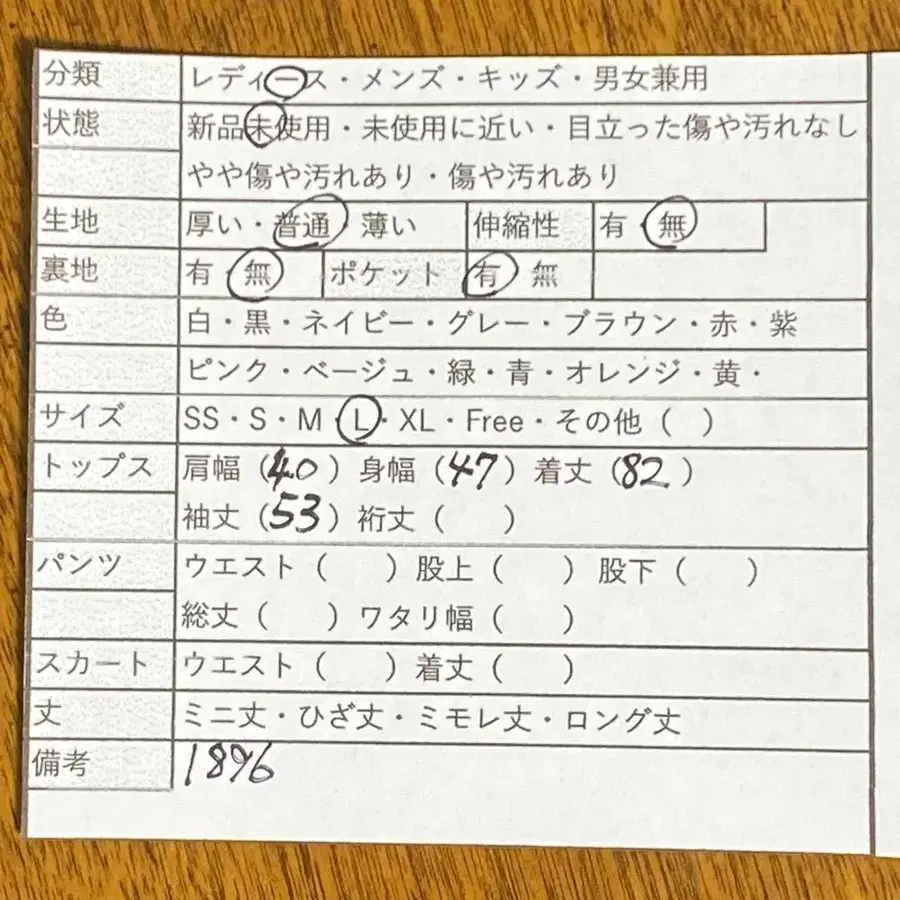 分類 レディース・メンズ・キッズ・男女兼用
状態 新品未使用・未使用に近い・目立った傷や汚れなし
やや傷や汚れあり・傷や汚れあり
生地 厚い・普通・薄い 伸縮性 有・無
裏地 有・無 ポケット 有・無
色 白・黒・ネイビー・グレー・ブラウン・赤・紫
ピンク・ベージュ・緑・青・オレンジ・黄・
サイズ SS・S・M・L・XL・Free・その他（ ）
トップス 肩幅（40）身幅（47）着丈（82）
袖丈（53）裄丈（ ）
パンツ ウエスト（ ）股上（ ）股下（ ）
総丈（ ）ワタリ幅（ ）
スカート ウエスト（ ）着丈（ ）
丈 ミニ丈・ひざ丈・ミモレ丈・ロング丈
備考 1896